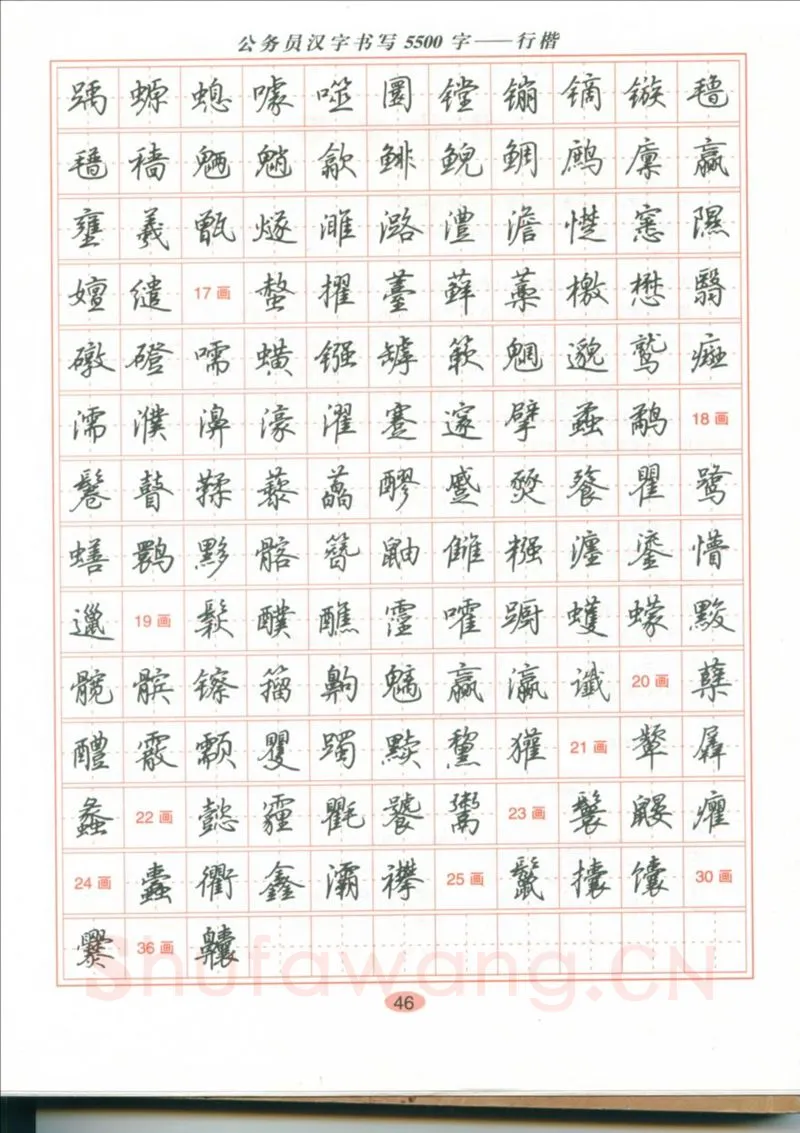 公务员汉字书写 5500 字——行楷
踽 螈 螅 噱 噬 圜 镗 镚 镝 镞 氇
氆 穑 魉 魈 歙 鲱 鲵 鲷 鹧 廪 嬴
壅 羲 甑 燧 濉 潞 澧 澹 憷 窸 隰
嬗 缱 17画 螯 擢 薹 藓 藁 檄 懋 翳
礅 磴 嚅 蟥 镪 罅 簌 魍 邈 鹫
濡 濮 濞 濠 濯 蹇 邃 擘 蟊 鹬 18画
鬈 瞽 鞣 藜 藠 醪 蹙 燹 餮 瞿 鹭
蟮 鹮 黟 髂 簪 鼬 雠 糨 瀍 鎏 懵
邋 19画 鬏 醭 醮 霪 嚯 蹰 蠖 蠓 黢
髋 髌 镲 籀 齁 魑 羸 瀛 谶 20画 蘖
醴 霰 颥 矍 躅 黩 黧 獾 21画 颦 羼
蠡 22画 懿 霾 氍 饕 鬻 23画 鬟 鼹 癯
24画 蠹 衢 鑫 灞 襻 25画 鬣 攮 馕 30画
爨 36画 齉
Shufawang.CN
46